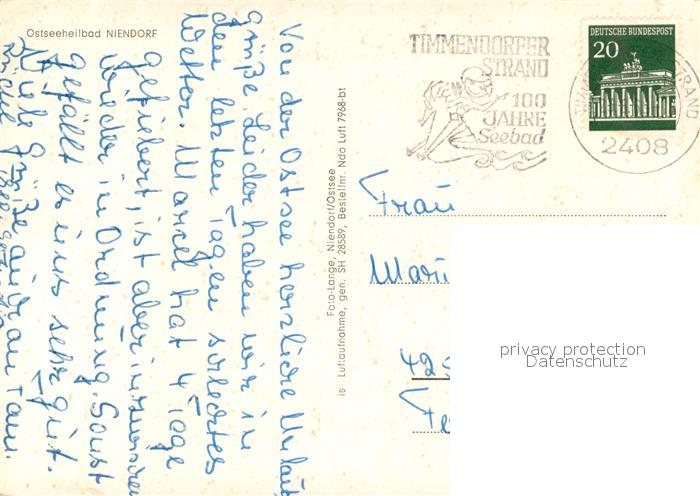 Ostseeheilbad NIENDORF
Von der Ostsee herzliche Urlaubs
grüße. Leider haben wir in
den letzten Tagen schlechtes
Wetter. Marcel hat 4 Tage
gefiebert, ist aber inzwischen
wieder in Ordnung. Sonst
gefällt es uns sehr gut.
Viele Grüße
Foto-Lange, Niendorf/Ostsee
is Luftaufnahme, gen. SH 28589, Bestellnr. Ndo Luft 7968-bt
TIMMENDORFER
STRAND
100
JAHRE
Seebad
DEUTSCHE BUNDESPOST
20
STRAND
2408
Frau
Mari
privacy protection
Datenschutz